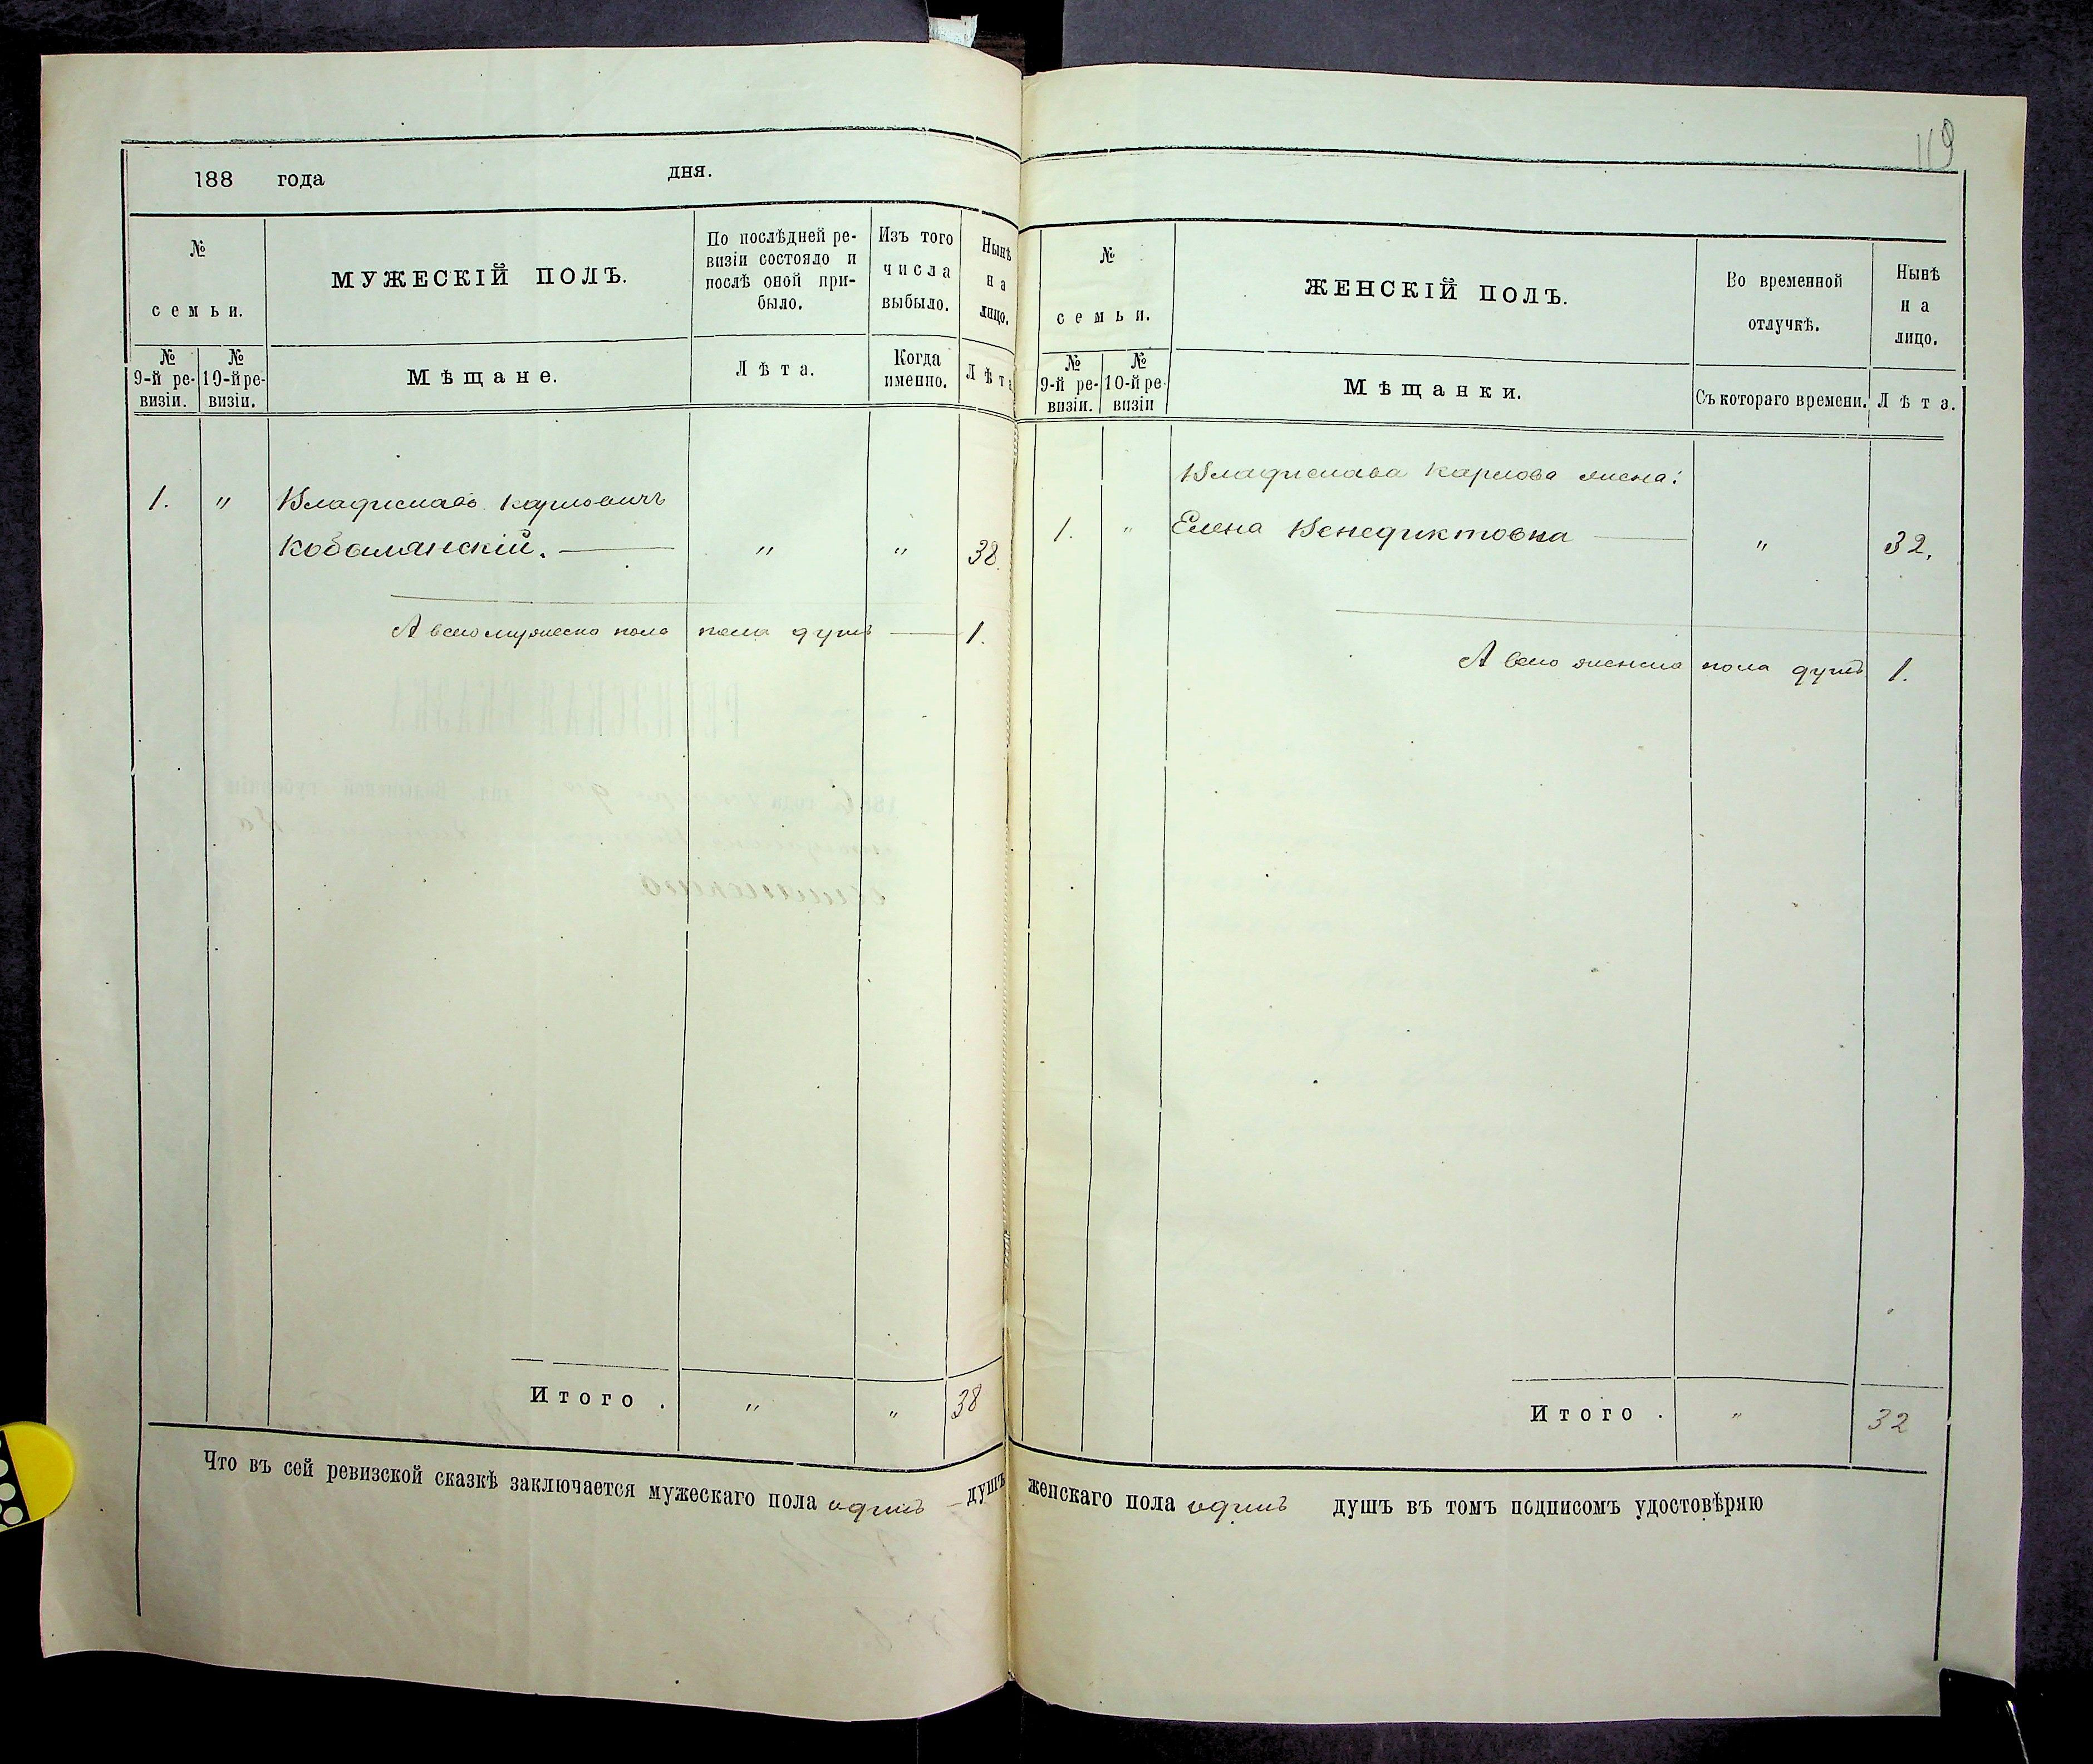 119
188 года дня.
№ семьи.
МУЖЕСКІЙ ПОЛЪ.
По послѣдней ре-
визіи состояло и
послѣ оной при-
было.
Изъ того
числа
выбыло.
Нынѣ
на
лицо.
№
9-й ре-
визіи.
№
10-й ре-
визіи.
Мѣщане.
Лѣта.
Когда
именно.
Лѣта
1. " Владиславъ Карловичъ
Кобылянскій. — " " 38.
А всего мужеско пола пола душъ — 1.
Итого . " " 38
Что въ сей ревизской сказкѣ заключается мужескаго пола одинъ — душъ
№
семьи.
ЖЕНСКІЙ ПОЛЪ.
Во временной
отлучкѣ.
Нынѣ
на
лицо.
№
9-й ре-
визіи.
№
10-й ре-
визіи
Мѣщанки.
Съ котораго времени.
Лѣта.
Владислава Карлова жена:
1. " Елена Венедиктовна — " 32.
А всего женско пола душъ 1.
Итого . " 32
женскаго пола одинъ душъ въ томъ подписомъ удостовѣряю